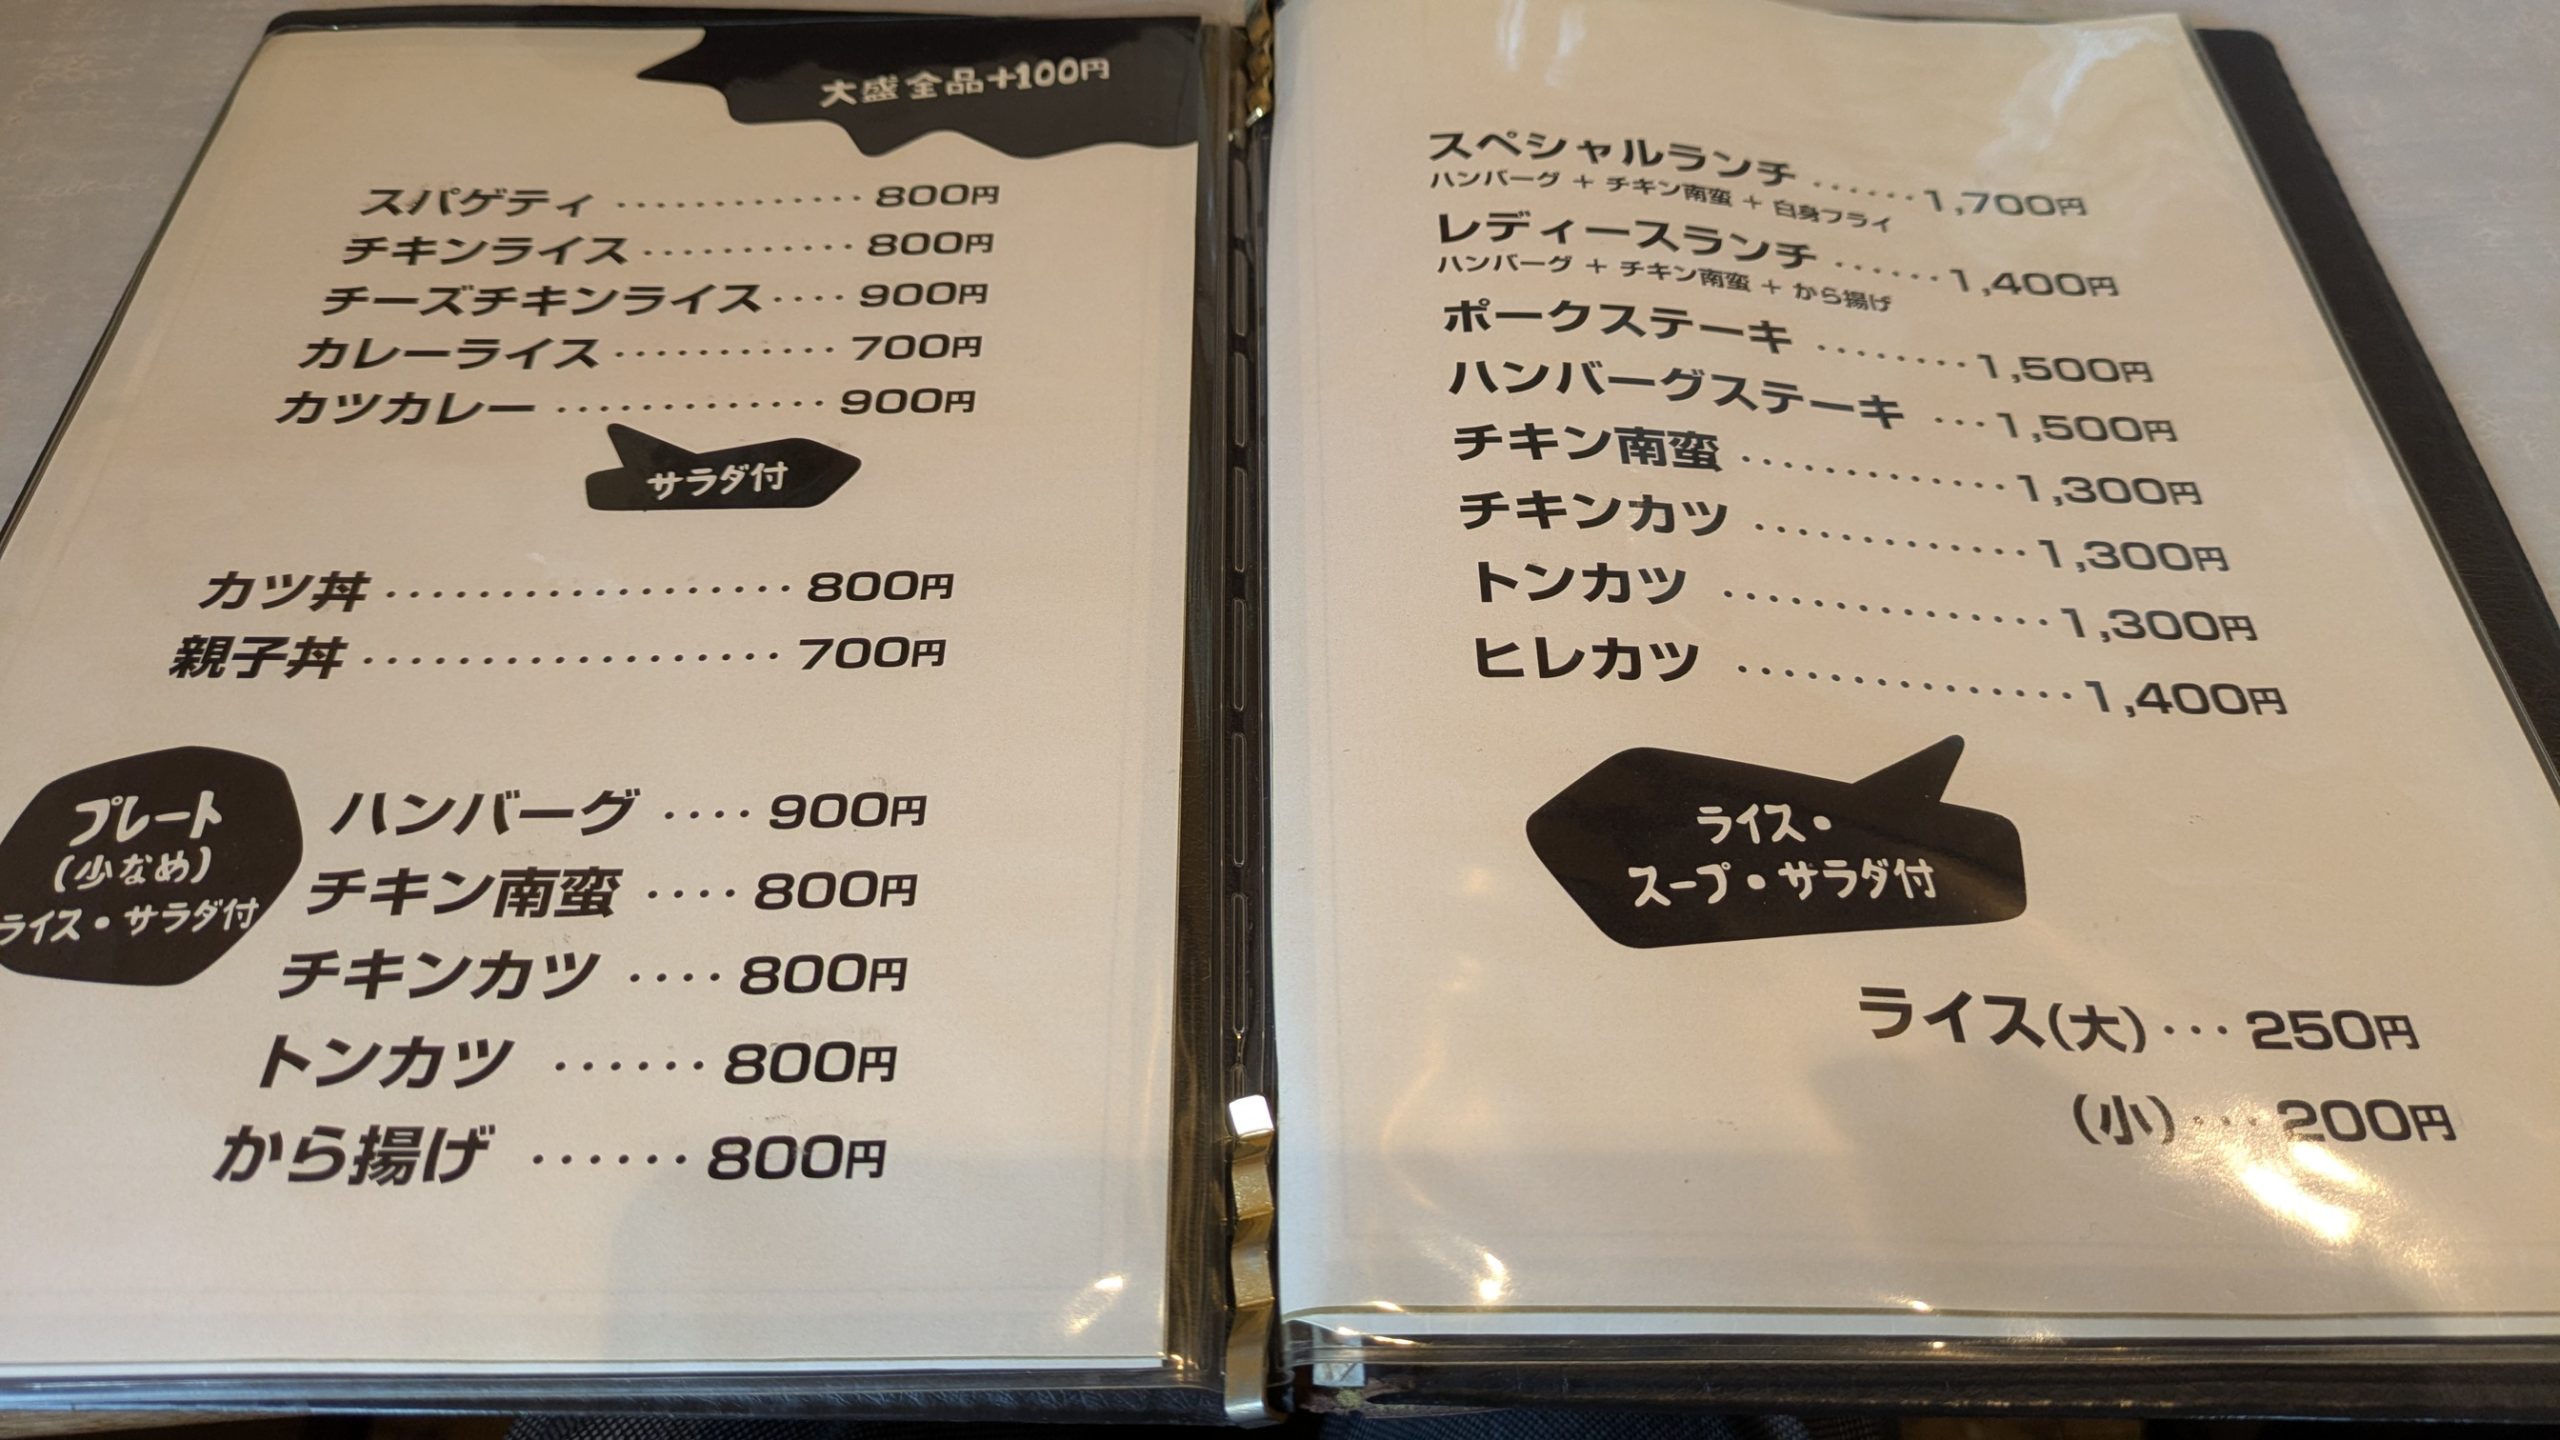 大盛全品+100円
スパゲティ ············· 800円
チキンライス ··········· 800円
チーズチキンライス ···· 900円
カレーライス ··········· 700円
カツカレー ············· 900円
サラダ付
カツ丼 ·················· 800円
親子丼 ··················· 700円
プレート
(少なめ)
ライス・サラダ付
ハンバーグ ···· 900円
チキン南蛮 ···· 800円
チキンカツ ···· 800円
トンカツ ······ 800円
から揚げ ······ 800円
スペシャルランチ ······ 1,700円
ハンバーグ + チキン南蛮 + 白身フライ
レディースランチ ······ 1,400円
ハンバーグ + チキン南蛮 + から揚げ
ポークステーキ ········ 1,500円
ハンバーグステーキ ··· 1,500円
チキン南蛮 ············ 1,300円
チキンカツ ············· 1,300円
トンカツ ··············· 1,300円
ヒレカツ ··············· 1,400円
ライス・
スープ・サラダ付
ライス(大) ··· 250円
(小) ··· 200円